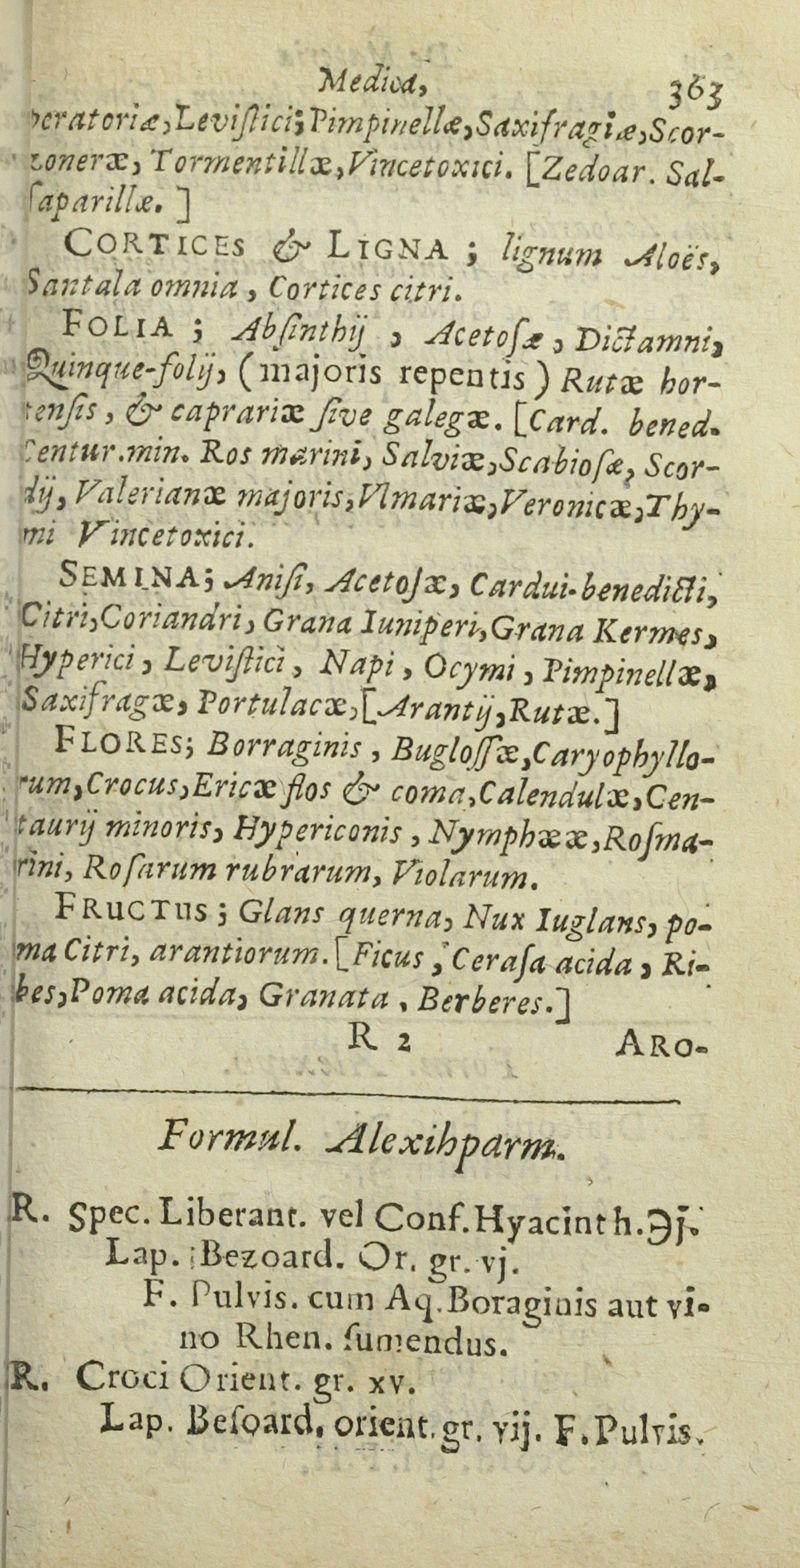 Medica, 363
peratoriæ, Leviſtici; Pimpinellæ, Saxifragiæ, Scor-
zoneræ, Tormentillæ, Vincetoxici. [Zedoar. Sal-
ſaparillæ. ]
CORTICES & LIGNA ; lignum Aloës,
Santala omnia , Cortices citri.
FOLIA ; Abſinthij , Acetoſæ , Dictamni,
Quinque-folij, (majoris repentis) Rutæ hor-
tenſis , & caprariæ ſive galegæ. [Card. bened.
Centur.min. Ros marini, Salviæ, Scabioſæ, Scor-
dij, Valerianæ majoris, Vlmariæ, Veronicæ, Thy-
mi Vincetoxici.
SEMINA; Aniſi, Acetoſæ, Cardui-benedicti,
Citri, Coriandri, Grana Iuniperi, Grana Kermes,
Hyperici , Leviſtici , Napi , Ocymi , Pimpinellæ,
Saxifragæ, Portulacæ, [Arantij, Rutæ.]
FLORES; Borraginis , Bugloſſæ, Caryophyllo-
rum, Crocus, Ericæ flos & coma, Calendulæ, Cen-
taurij minoris, Hypericonis , Nymphææ, Roſma-
rini, Roſarum rubrarum, Violarum.
FRUCTUS ; Glans querna, Nux Iuglans, po-
ma Citri, arantiorum. [Ficus , Ceraſa acida , Ri-
bes, Poma acida, Granata , Berberes.]
R 2 ARO-
Formul. Alexihparm.
R. Spec. Liberant. vel Conf. Hyacinth. ℈j.
Lap. Bezoard. Or. gr. vj.
F. Pulvis. cum Aq. Boraginis aut vi-
no Rhen. ſumendus.
R. Croci Orient. gr. xv.
Lap. Beſoard. orient. gr. vij. F. Pulvis.